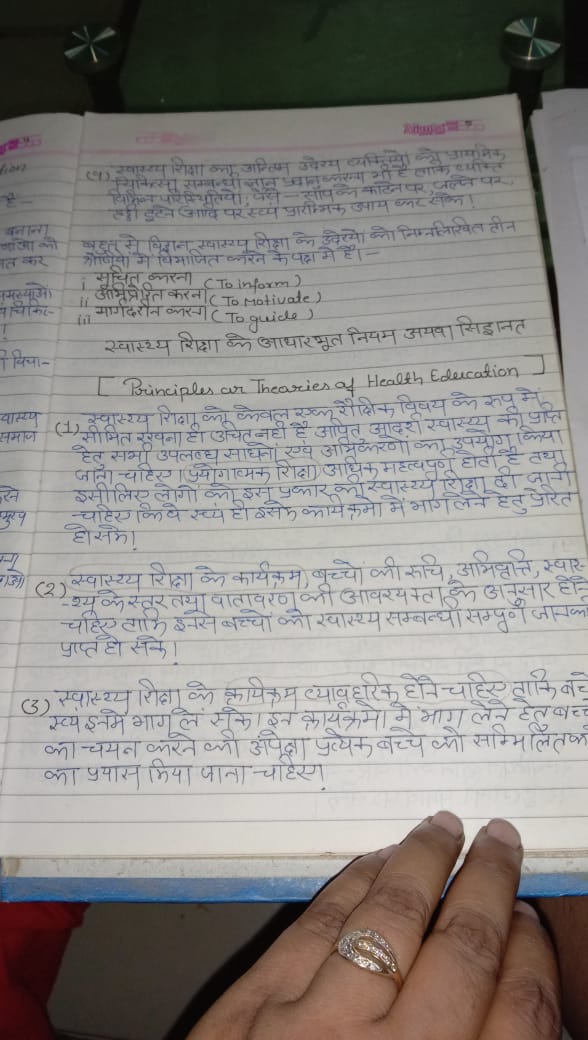 (9) स्वास्थ्य शिक्षा का अन्तिम उद्देश्य व्यक्तियों को प्राथमिक
चिकित्सा सम्बन्धी ज्ञान प्रदान करना भी है ताकि व्यक्ति
विभिन्न परिस्थितियों, जैसे - सांप के काटने पर, जलने पर,
हड्डी टूटने आदि पर स्वयं प्राथमिक उपाय कर सके।
बहुत से विद्वान स्वास्थ्य शिक्षा के उद्देश्यों को निम्नलिखित तीन
श्रेणियों में विभाजित करने के पक्ष में हैं।-
i सूचित करना (To inform)
ii अभिप्रेरित करना (To Motivate)
iii मार्गदर्शन करना (To guide)
स्वास्थ्य शिक्षा के आधारभूत नियम अथवा सिद्वान्त
[Principles or Thearies of Health Education]
(1) स्वास्थ्य शिक्षा को केवल एक शैक्षिक विषय के रूप में
सीमित रखना ही उचित नहीं है अपितु आदर्श स्वास्थ्य की प्राप्ति
हेतु सभी उपलब्ध साधनों एवं अभिकरणों का उपयोग किया
जाना चाहिए। प्रयोगात्मक शिक्षा अधिक महत्वपूर्ण होती है तथा
इसीलिए लोगों को इस प्रकार की स्वास्थ्य शिक्षा दी जानी
चाहिए कि वे स्वयं ही इसके कार्यक्रमों में भाग लेने हेतु प्रेरित
हो सके।
(2) स्वास्थ्य शिक्षा के कार्यक्रम, बच्चों की रुचि, अभिवृत्ति, स्वास-
-थ्य के स्तर तथा वातावरण की आवश्यकता के अनुसार होने
चाहिए ताकि इनसे बच्चों को स्वास्थ्य सम्बन्धी सम्पूर्ण जानका
प्राप्त हो सके।
(3) स्वास्थ्य शिक्षा के कार्यक्रम व्यावहारिक होने चाहिए ताकि बच्चे
स्वयं इनमें भाग ले सके। इन कार्यक्रमों में भाग लेने हेतु बच्चे
का चयन करने की अपेक्षा प्रत्येक बच्चे को सम्मिलित क
का प्रयास किया जाना चाहिए